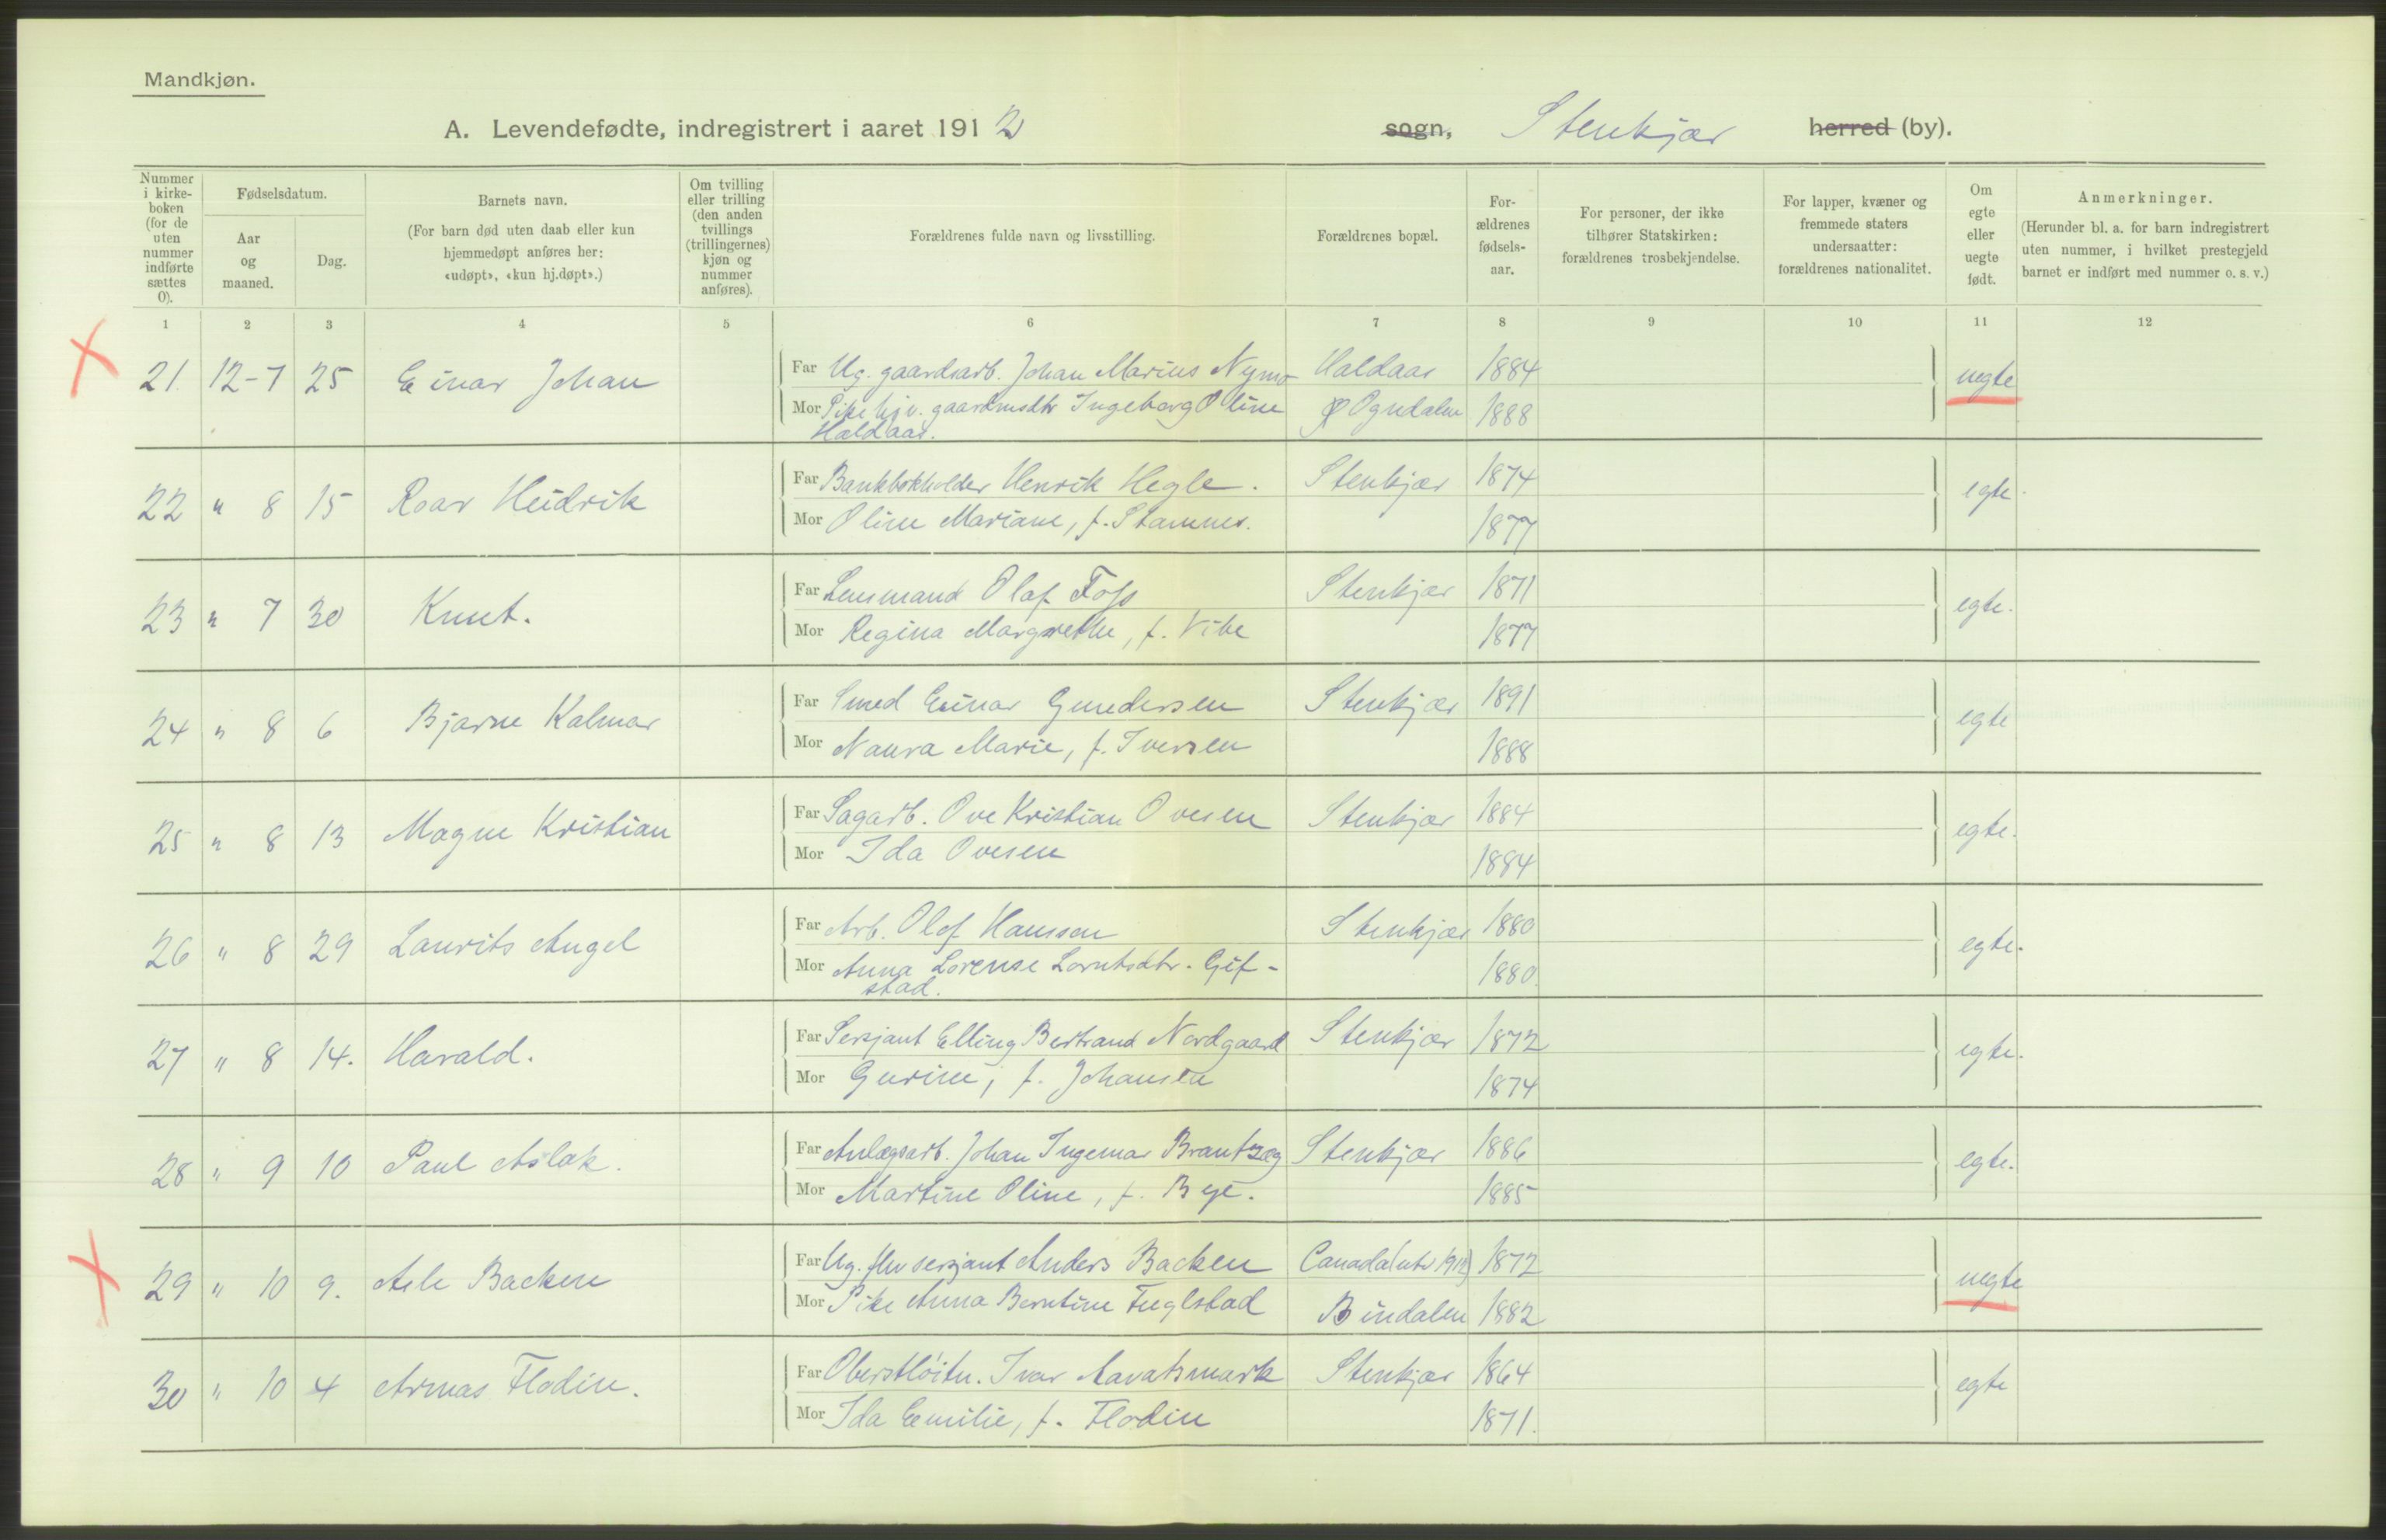 Mandkjøn.
A. Levendefødte, indregistrert i aaret 1912 sogn, Stenkjær herred (by).
Nummer i kirke-boken (for de uten nummer indførte sættes 0).
Fødselsdatum.
Aar og maaned.
Dag.
Barnets navn.
(For barn død uten daab eller kun hjemmedøpt anføres her: «udøpt», «kun hj.døpt».)
Om tvilling eller trilling (den anden tvillings (trillingernes) kjøn og nummer anføres).
Forældrenes fulde navn og livsstilling.
Forældrenes bopæl.
For-ældrenes fødsels-aar.
For personer, der ikke tilhører Statskirken: forældrenes trosbekjendelse.
For lapper, kvæner og fremmede staters undersaatter: forældrenes nationalitet.
Om egte eller uegte født.
Anmerkninger.
(Herunder bl. a. for barn indregistrert uten nummer, i hvilket prestegjeld barnet er indført med nummer o. s. v.)
1 2 3 4 5 6 7 8 9 10 11 12
21. 12-7 25 Einar Johan Far Ug. gaardsarb. Johan Marius Nymo Haldaas 1884 uegte
Mor Pike hjv. gaardmsdtr Ingeborg Oline Ogndalen 1888
Haldaas.
22 " 8 15 Roar Heidrik Far Bankbokholder Henrik Hegle. Stenkjær 1874 egte.
Mor Oline Mariane, f. Stamnes. 1877
23 " 7 30 Knut. Far Lensmand Olaf Foss Stenkjær 1871 egte.
Mor Regina Margrethe, f. Vibe 1877
24 " 8 6 Bjarne Kalmar Far Smed Einar Gundersen Stenkjær 1891 egte
Mor Naura Marie, f. Iversen 1888
25 " 8 13 Magne Kristian Far Sagarb. Ove Kristian Ovesen Stenkjær 1884 egte.
Mor Ida Ovesen 1884
26 " 8 29 Laurits Angel Far Arb. Olof Hansen Stenkjær 1880 egte.
Mor Anna Lorense Lorntsdtr. Gif- 1880.
stad.
27 " 8 14. Harald. Far Sersjant Elling Bertrand Nordgaard Stenkjær 1872 egte.
Mor Gurine, f. Johansen 1874
28 " 9 10 Paul Aslak. Far Anlægsarb. Johan Ingemar Brantzæg Stenkjær 1886 egte.
Mor Martine Oline, f. Bye. 1885
29 " 10 9. Atle Backen Far Ug. fhv sersjant Anders Backen Canada 1872 uegte
Mor Pike Anna Berntine Fuglstad Bindalen 1882
30 " 10 4 Armas Flodin. Far Oberstløitn. Ivar Aavatsmark Stenkjær 1864 egte
Mor Ida Emilie, f. Flodin 1871.